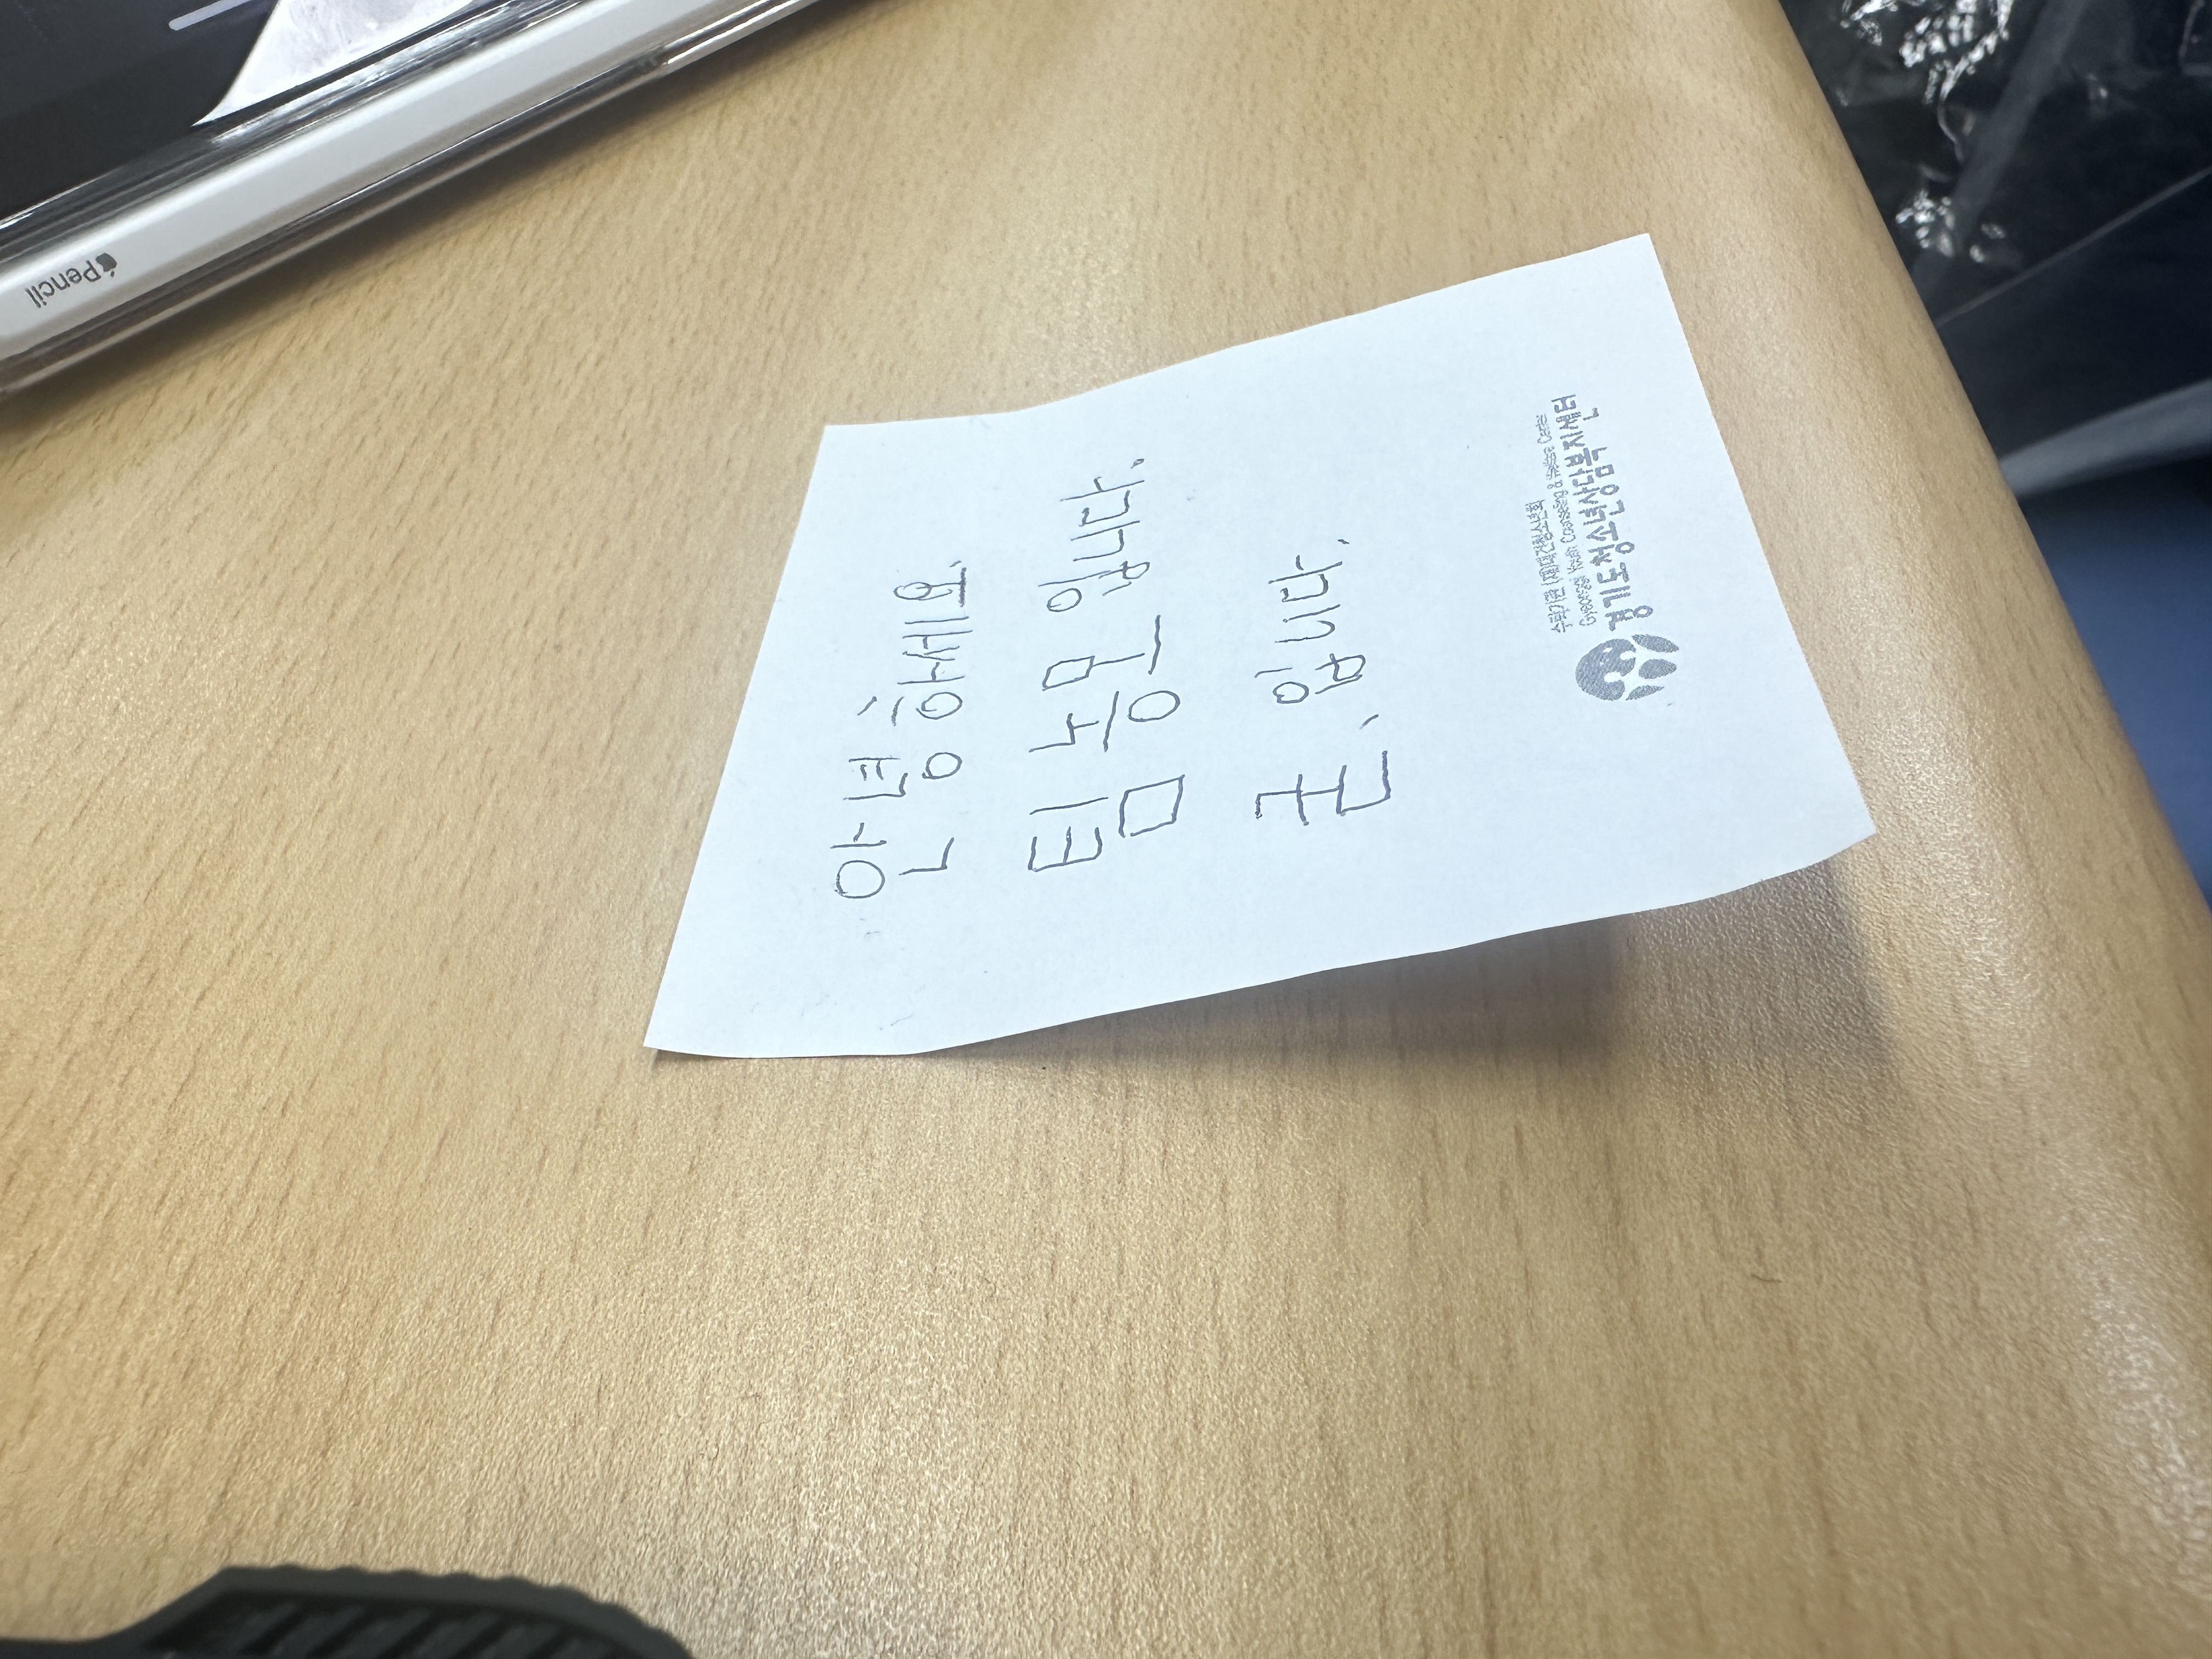 안녕하세요.
팀 농모 입니다.
굳, 입니다.
수탁기관 (재)대건청소년회
Gyeonggi Youth Counseling & Welfare Center
경기도청소년상담복지센터
Pencil